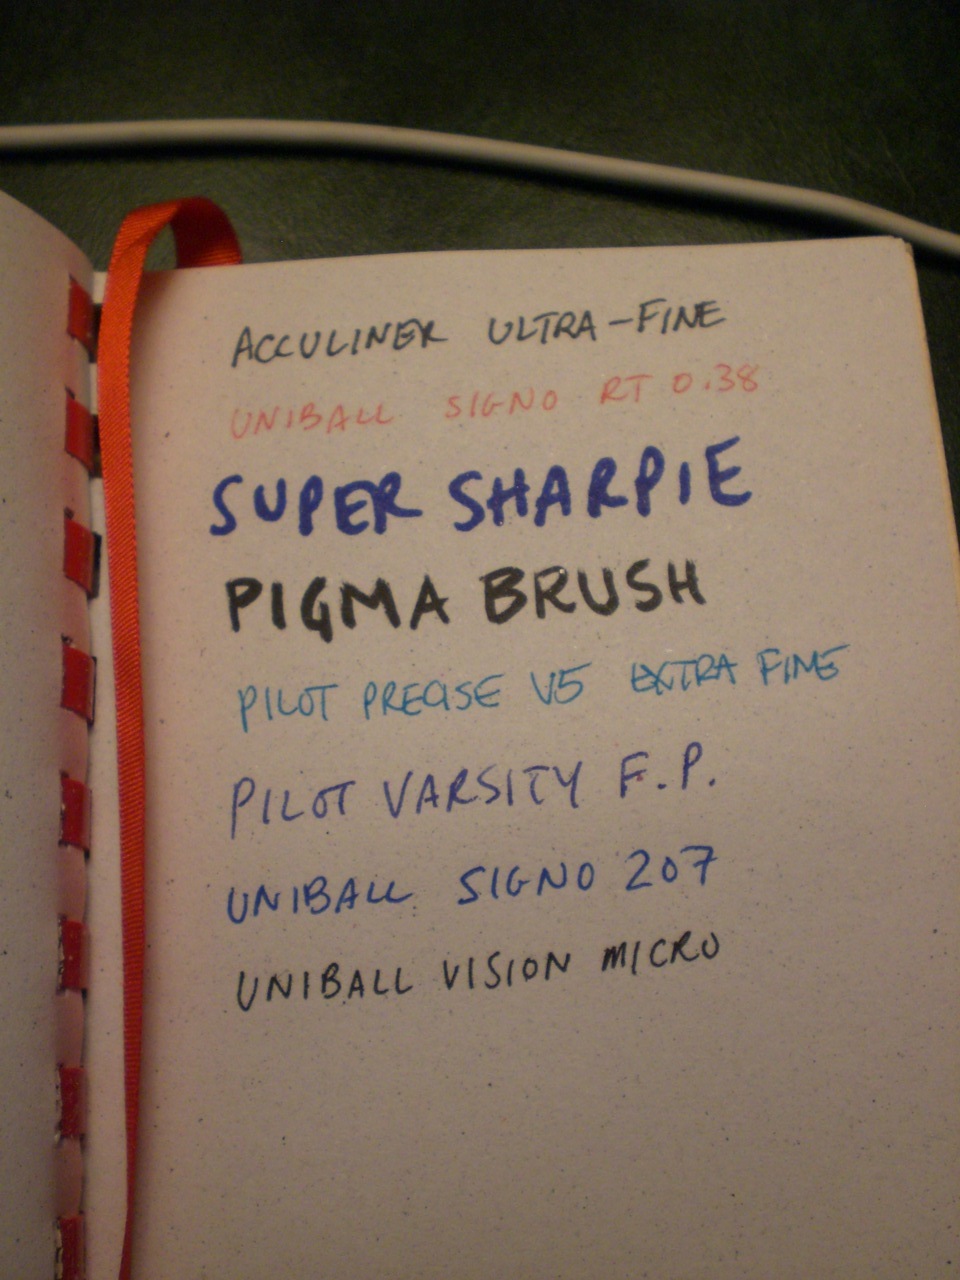 ACCULINER ULTRA-FINE
UNIBALL SIGNO RT 0.38
SUPER SHARPIE
PIGMA BRUSH
PILOT PRECISE V5 EXTRA FINE
PILOT VARSITY F.P.
UNIBALL SIGNO 207
UNIBALL VISION MICRO